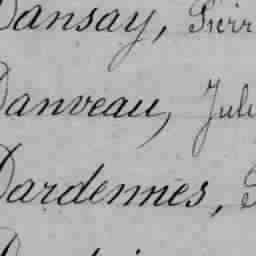 Dansay,
Danveau, Jul
Dardennes,